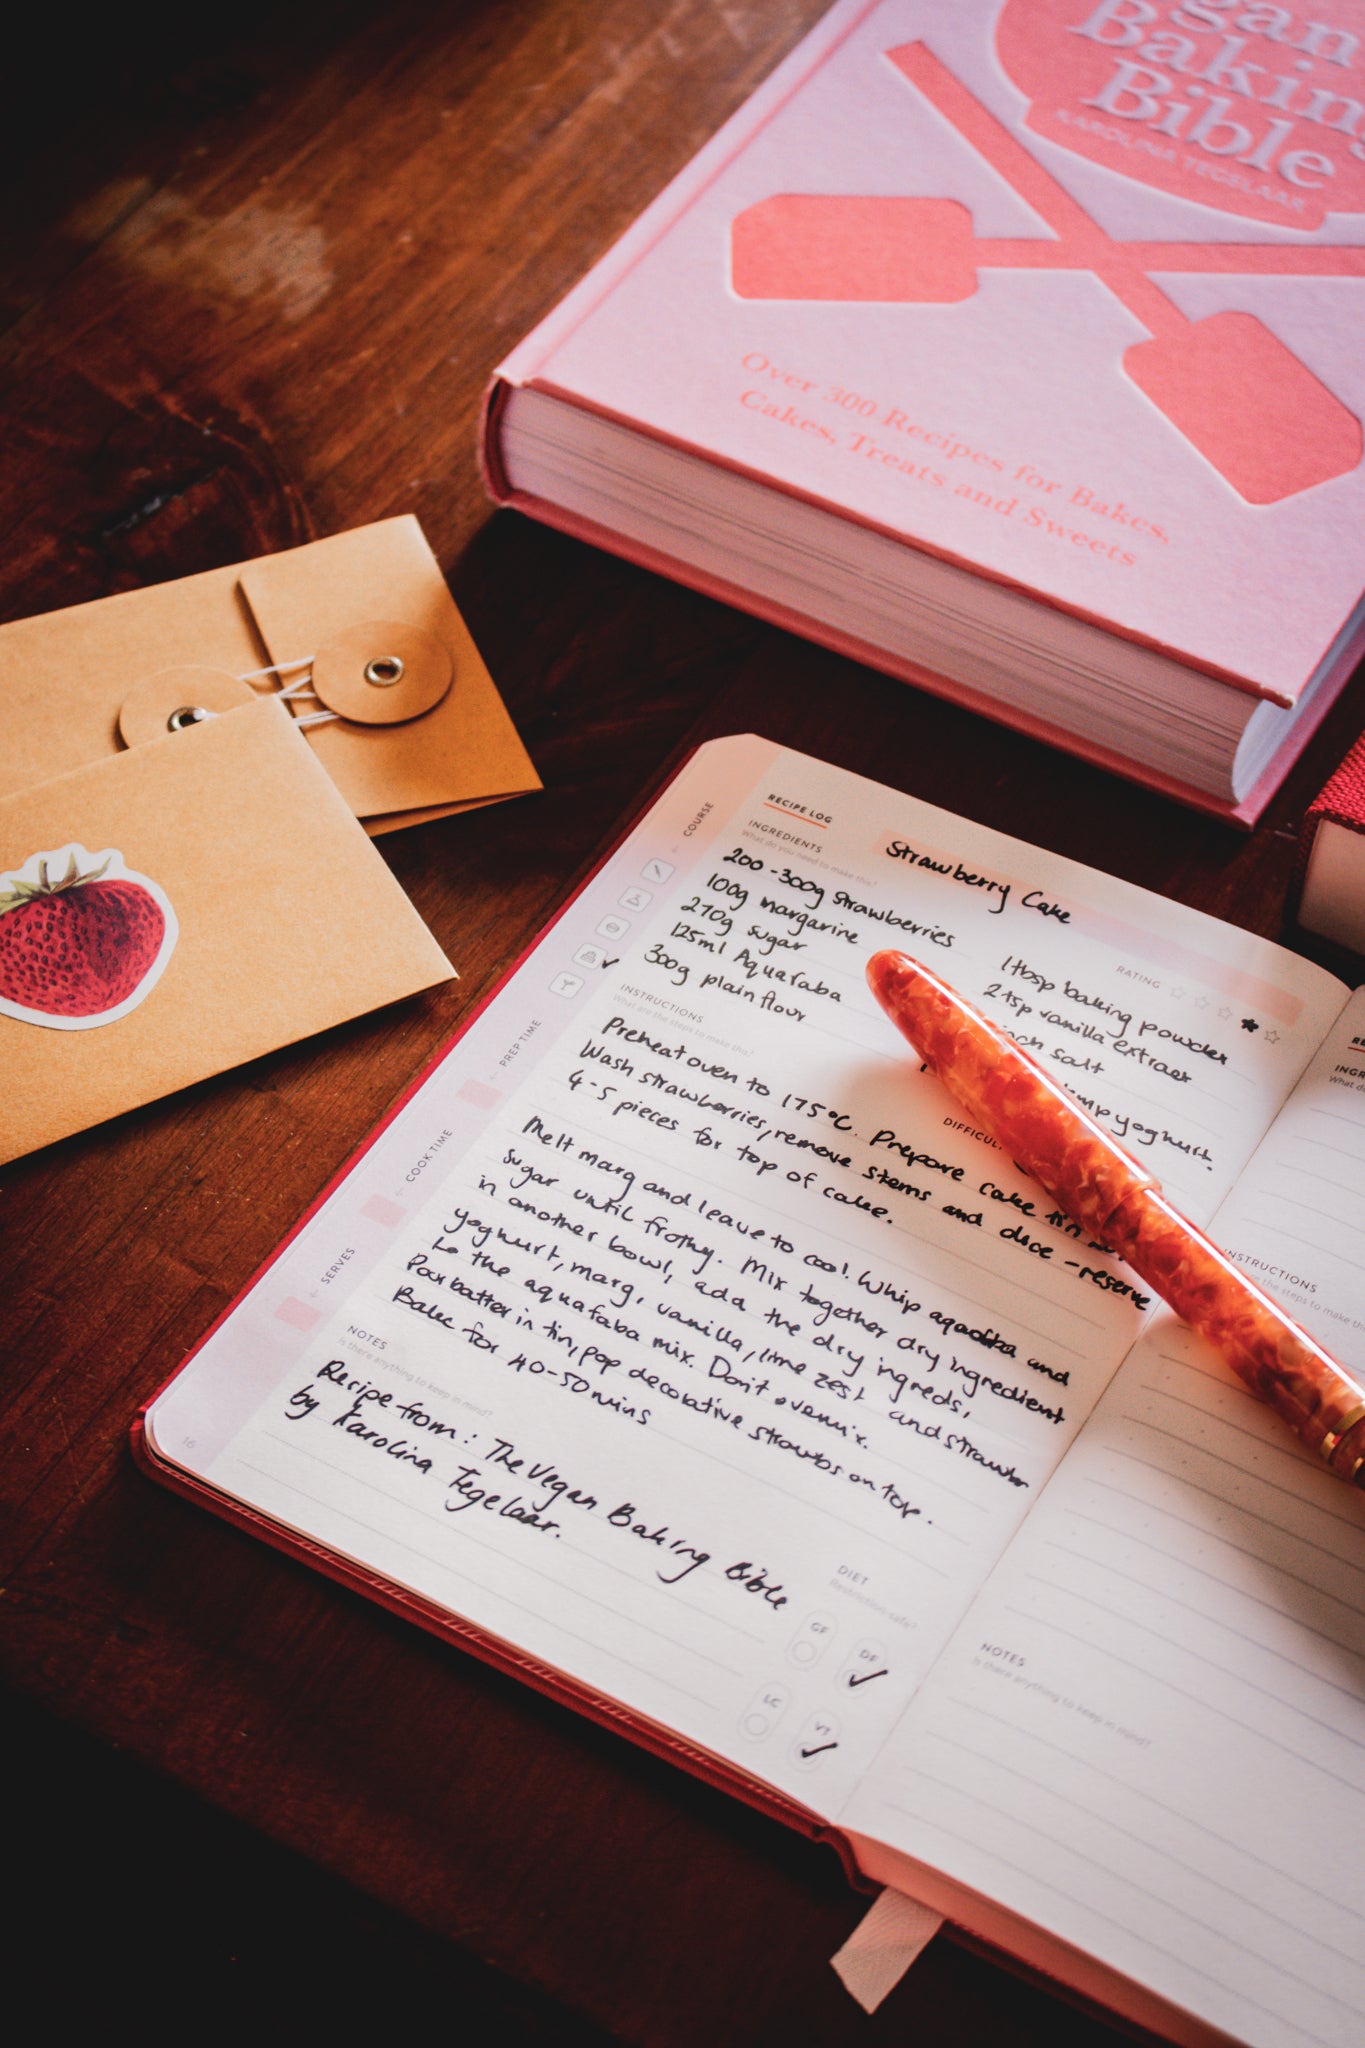 gan
Baking
Bible
KAROLINA TEGELAAR
Over 300 Recipes for Bakes,
Cakes, Treats and Sweets
RECIPE LOG
Strawberry Cake
INGREDIENTS
What do you need to make this?
200-300g strawberries
100g margarine
270g sugar
125ml Aquafaba
300g plain flour
RATING
1 tbsp baking powder
2 tsp vanilla extract
salt
yoghurt.
DIFFICUL
COURSE
PREP TIME
COOK TIME
SERVES
INSTRUCTIONS
What are the steps to make this?
Preheat oven to 175°C. Prepare cake tin
Wash strawberries, remove stems and dice - reserve
4-5 pieces for top of cake.
Melt marg and leave to cool. Whip aquafaba and
sugar until frothy. Mix together dry ingredient
in another bowl, add the dry ingreds,
yoghurt, marg, vanilla, lime zest and strawbr
to the aquafaba mix. Don't overmix.
Pour batter in tin, pop decorative strawbs on top.
Bake for 40-50 mins
NOTES
Is there anything to keep in mind?
Recipe from: The Vegan Baking Bible
by Karolina Tegelaar.
DIET
Restriction safe?
GF
DF
LC
VT
16
RE
INGR
What d
INSTRUCTIONS
the steps to make th
NOTES
Is there anything to keep in mind?